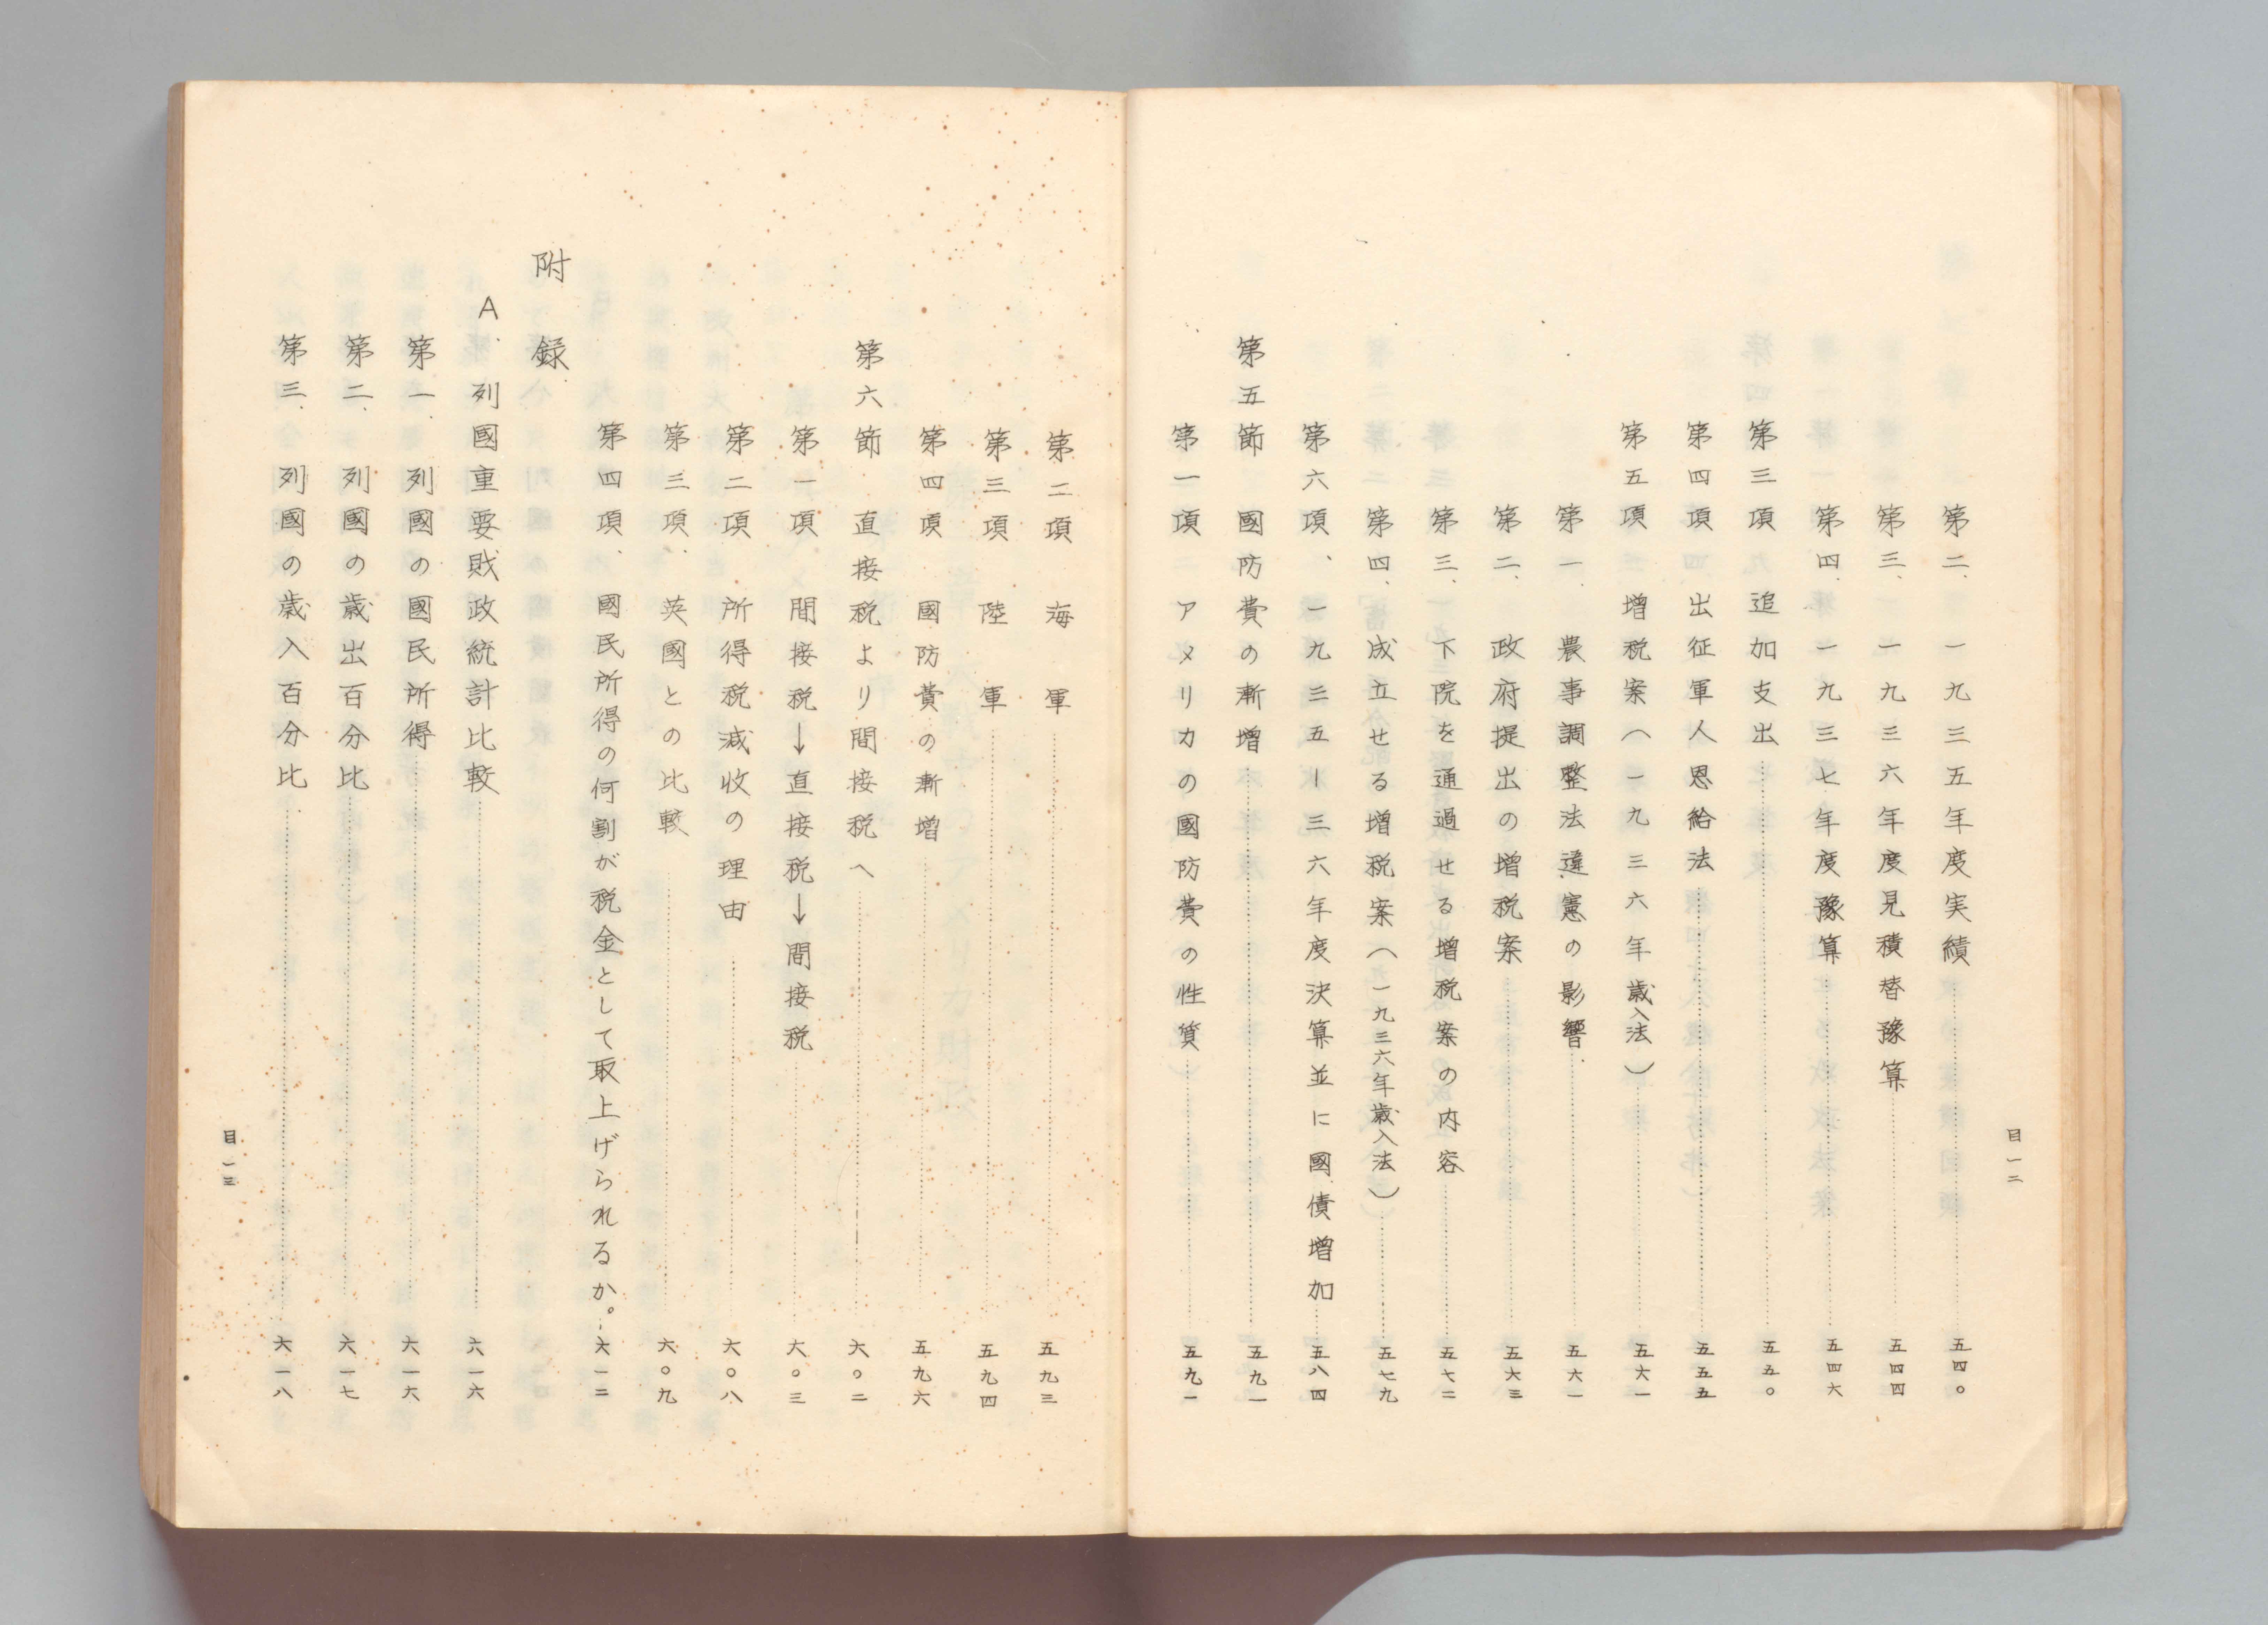 第二、一九三五年度実績…五四〇
第三、一九三六年度見積替豫算…五四四
第四、一九三七年度豫算…五四六
第三項 追加支出…五五〇
第四項 出征軍人恩給法…五五五
第五項 增税案(一九三六年歳入法)…五六一
第一、農事調整法違憲の影響…五六一
第二、政府提出の增税案…五六三
第三、下院を通過せる增税案の内容…五七二
第四、成立せる增税案(一九三六年歳入法)…五七九
第六項、一九三五ー三六年度決算並に國債增加…五八四
第五節 國防費の漸增…五九一
第一項 アメリカの國防費の性質…五九一
目一二
第二項 海軍…五九三
第三項 陸軍…五九四
第四項 國防費の漸增…五九六
第六節 直接税より間接税へ…六〇二
第一項 間接税→直接税→間接税…六〇三
第二項 所得税減收の理由…六〇八
第三項、英國との比較…六〇九
第四項、國民所得の何割が税金として取上げられるか。…六一二
附録
A.列國重要財政統計比較…六一六
第一、列國の國民所得…六一六
第二、列國の歳出百分比…六一七
第三、列國の歳入百分比…六一八
目一三